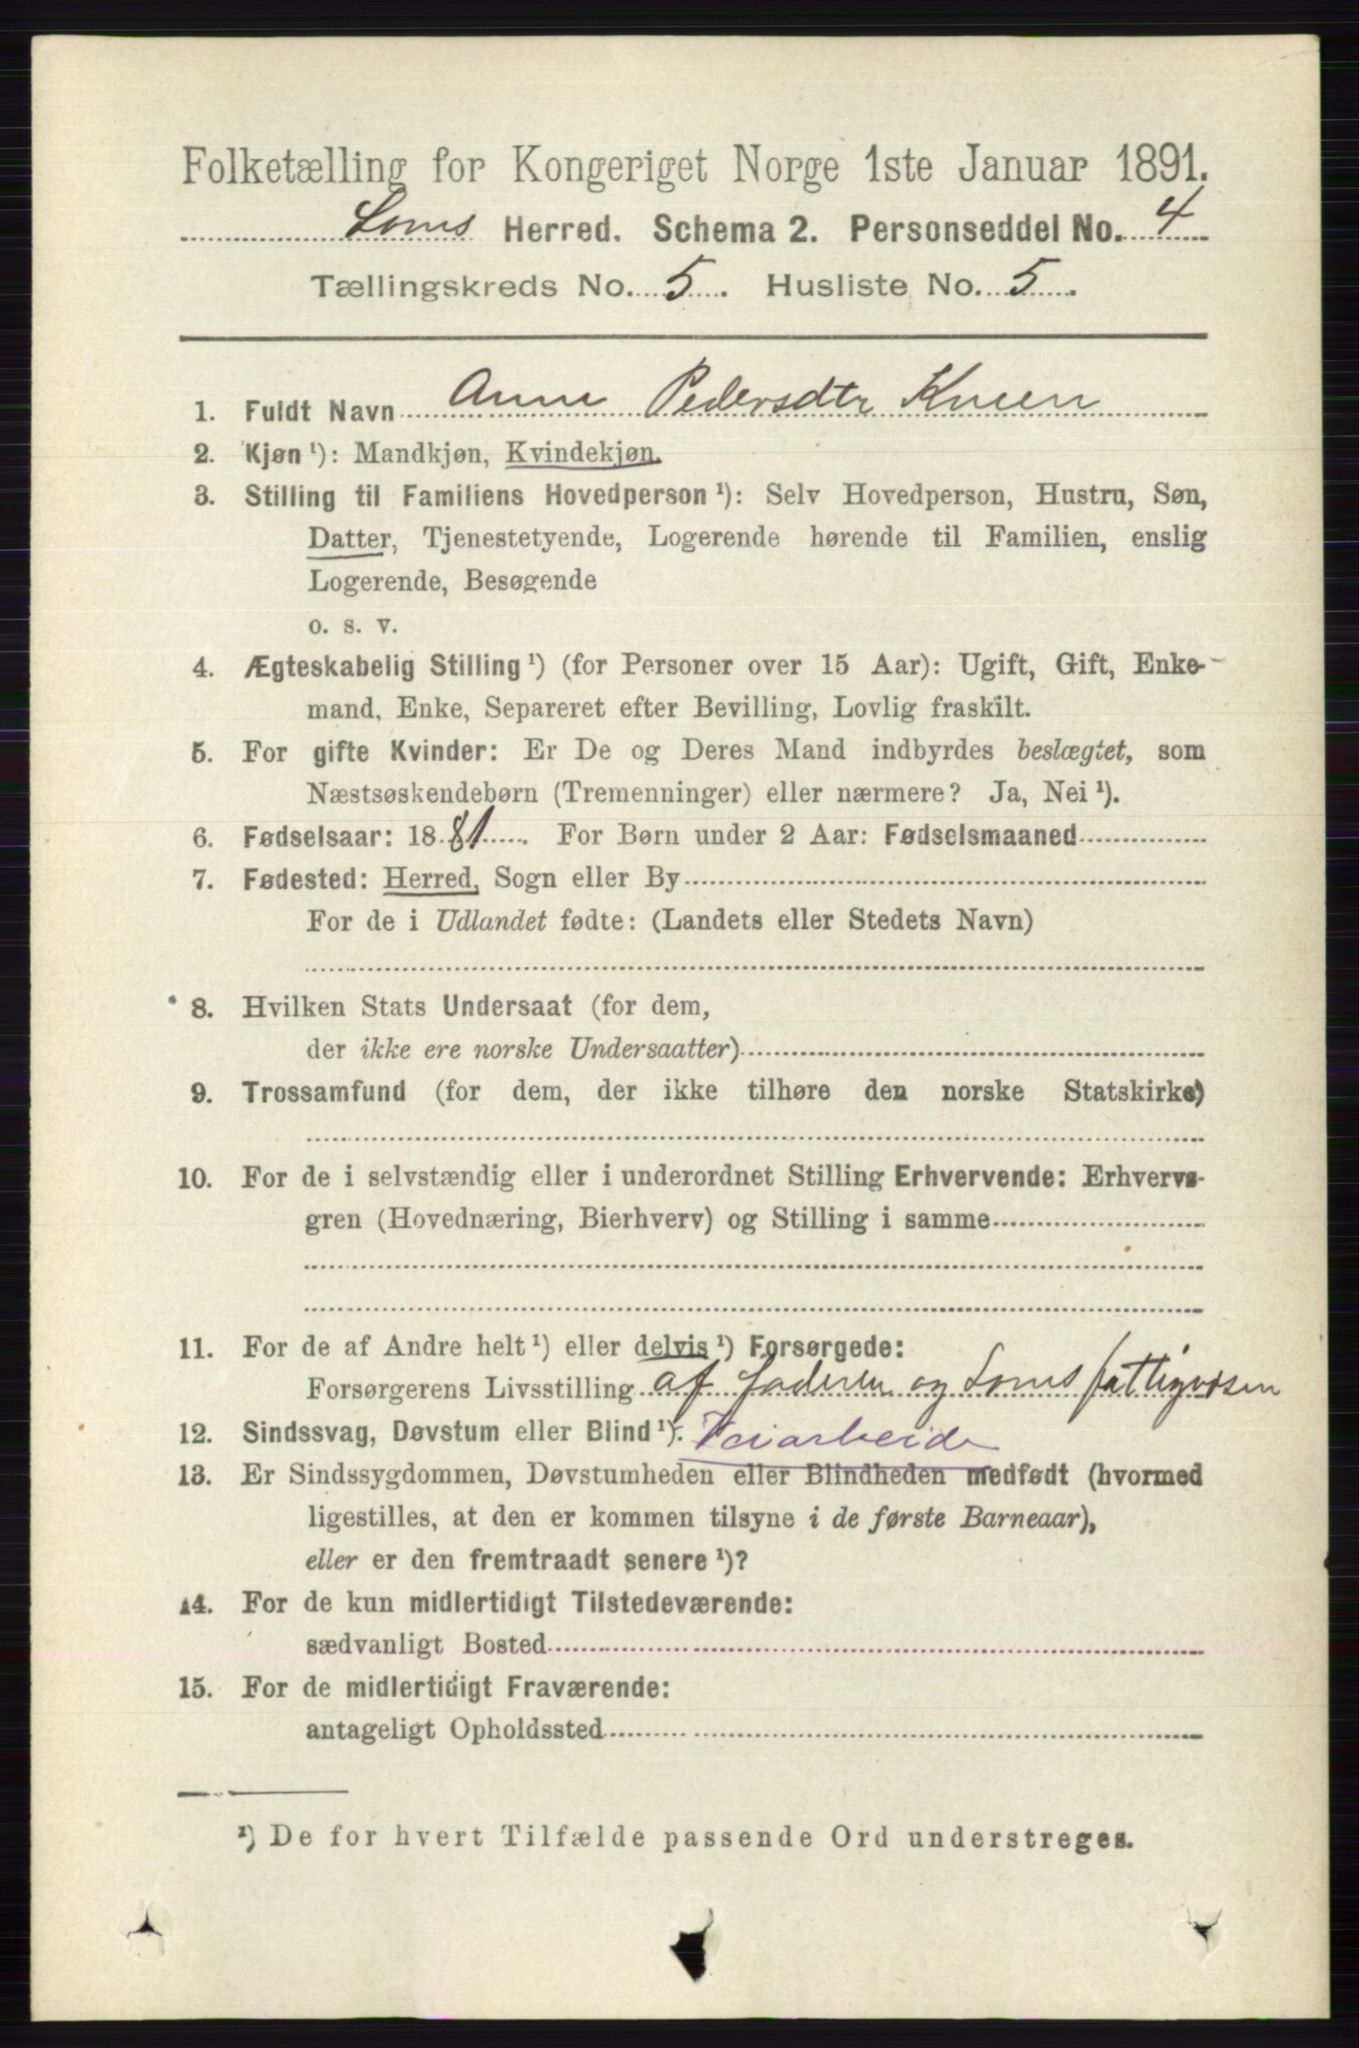 Folketælling for Kongeriget Norge 1ste Januar 1891.
Loms Herred. Schema 2. Personseddel No. 4
Tællingskreds No. 5. Husliste No. 5.
1. Fuldt Navn Anne Pedersdtr Kneen
2. Kjøn ¹): Mandkjøn, Kvindekjøn.
3. Stilling til Familiens Hovedperson ¹): Selv Hovedperson, Hustru, Søn,
Datter, Tjenestetyende, Logerende hørende til Familien, enslig
Logerende, Besøgende
o. s. v.
4. Ægteskabelig Stilling ¹) (for Personer over 15 Aar): Ugift, Gift, Enke-
mand, Enke, Separeret efter Bevilling, Lovlig fraskilt.
5. For gifte Kvinder: Er De og Deres Mand indbyrdes beslægtet, som
Næstsøskendebørn (Tremenninger) eller nærmere? Ja, Nei ¹).
6. Fødselsaar: 1881. For Børn under 2 Aar: Fødselsmaaned
7. Fødested: Herred, Sogn eller By
For de i Udlandet fødte: (Landets eller Stedets Navn)
8. Hvilken Stats Undersaat (for dem,
der ikke ere norske Undersaatter)
9. Trossamfund (for dem, der ikke tilhøre den norske Statskirke)
10. For de i selvstændig eller i underordnet Stilling Erhvervende: Erhvervs-
gren (Hovednæring, Bierhverv) og Stilling i samme
11. For de af Andre helt ¹) eller delvis ¹) Forsørgede:
Forsørgerens Livsstilling af faderen og Loms fattigvæsen
12. Sindssvag, Døvstum eller Blind ¹): Veiarbeide
13. Er Sindssygdommen, Døvstumheden eller Blindheden medfødt (hvormed
ligestilles, at den er kommen tilsyne i de første Barneaar),
eller er den fremtraadt senere ¹)?
14. For de kun midlertidigt Tilstedeværende:
sædvanligt Bosted
15. For de midlertidigt Fraværende:
antageligt Opholdssted
¹) De for hvert Tilfælde passende Ord understreges.